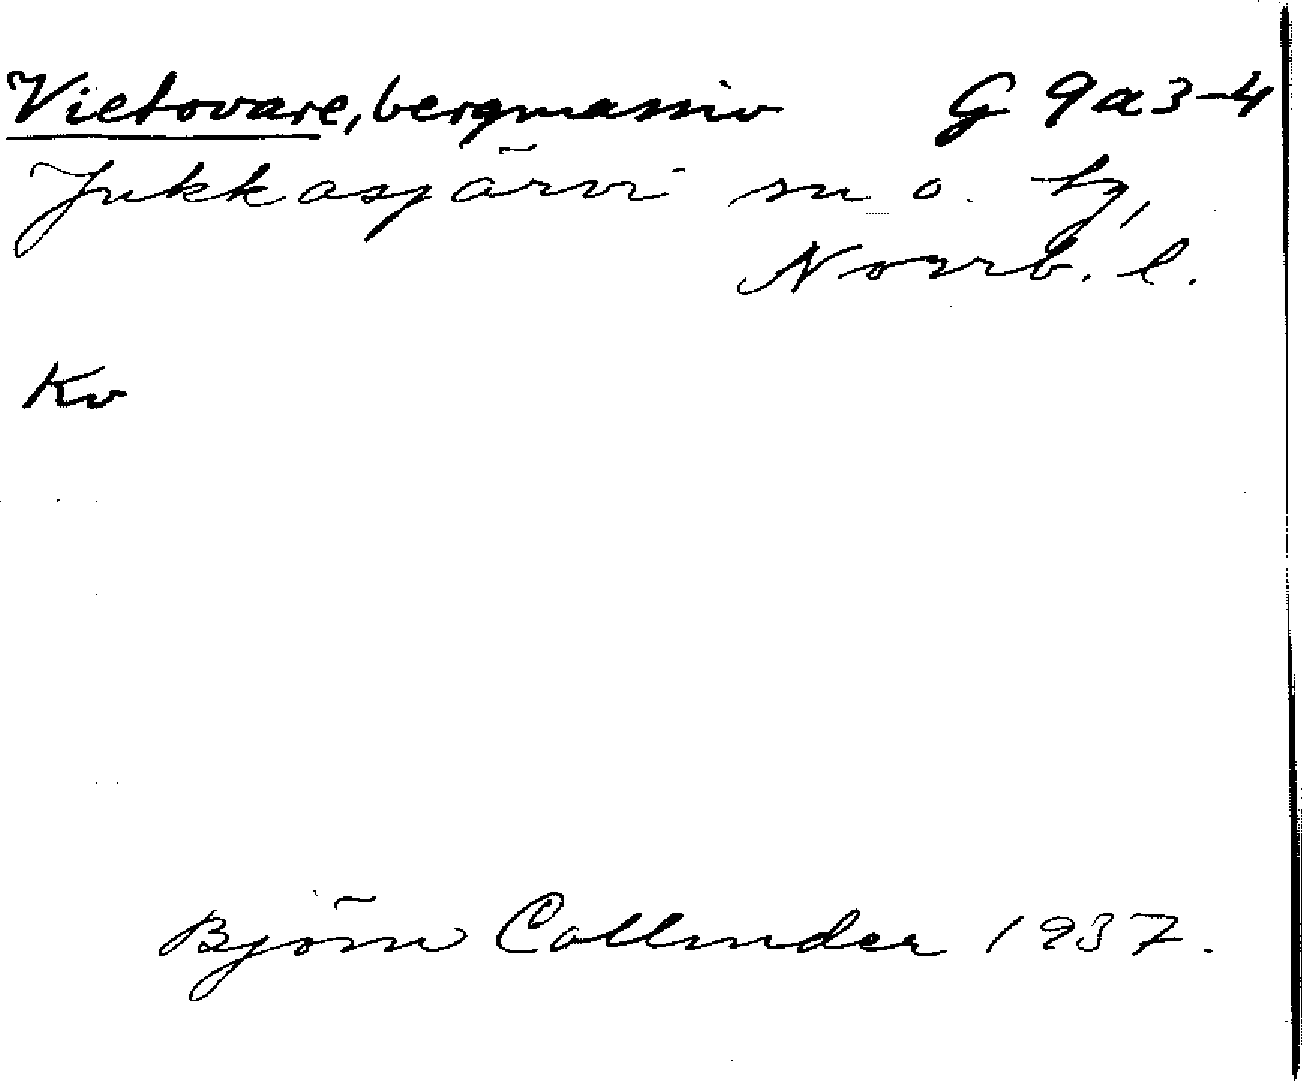 Vietovare, bergmassiv G 9a3-4
Jukkasjärvi sn o. tg,
Norrb. l.
Kv
Björn Collinder 1937.